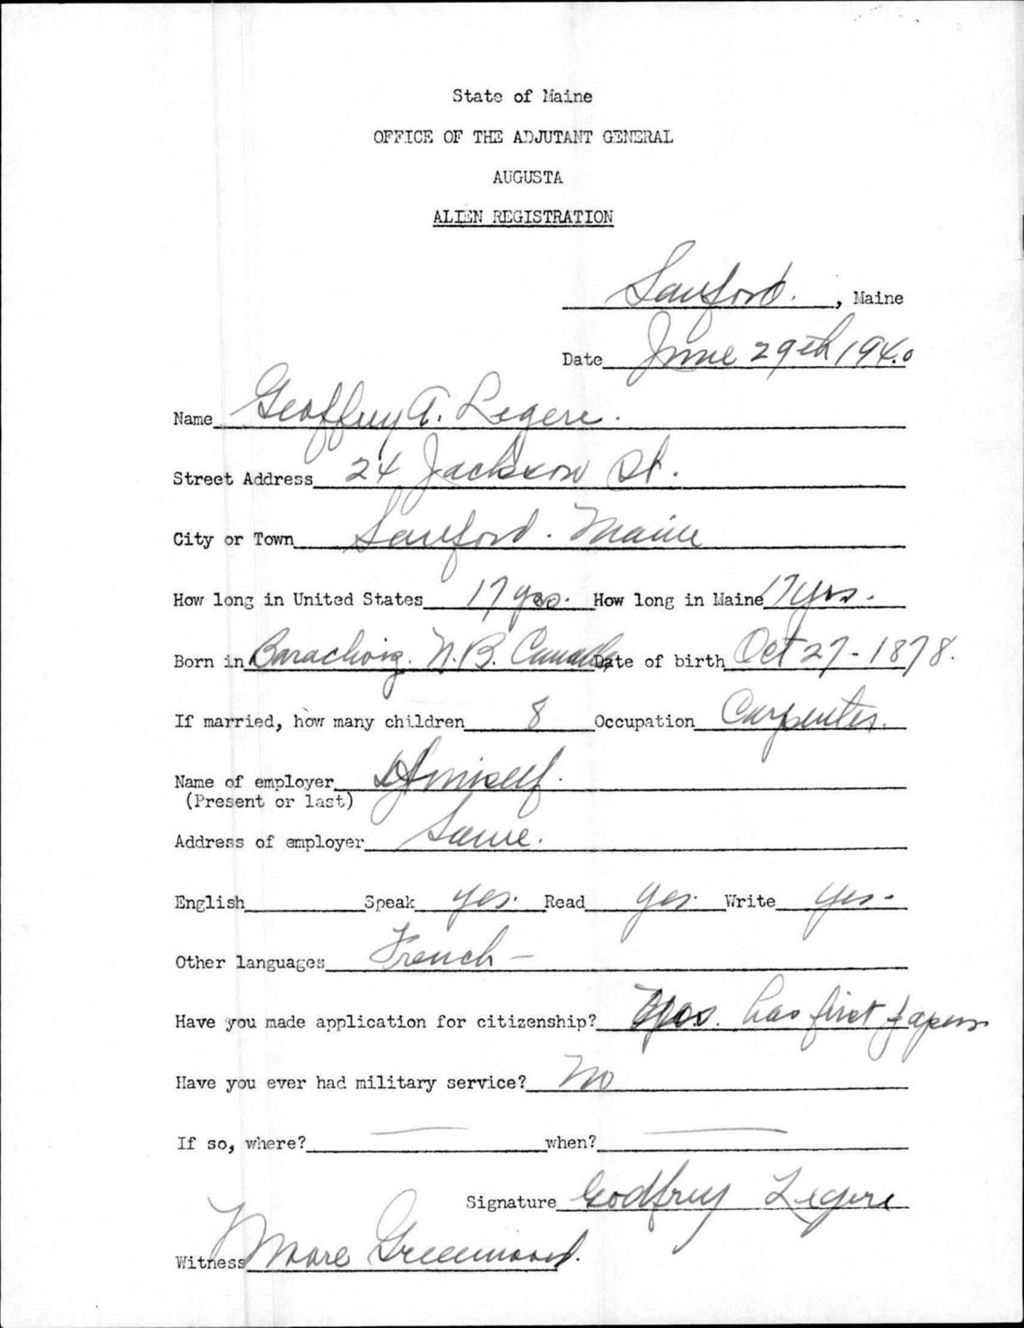 State of Maine
OFFICE OF THE ADJUTANT GENERAL
AUGUSTA
ALIEN REGISTRATION
Sanford. , Maine
Date June 29th 1940
Name Geoffrey A. Legere.
Street Address 24 Jackson St.
City or Town Sanford. Maine
How long in United States 17 yrs. How long in Maine 17 yrs.
Born in Barachoig. N.B. Canada Date of birth Oct 27-1878.
If married, how many children 8 Occupation Carpenter.
Name of employer Himself.
(Present or last)
Address of employer Same.
English Speak yes. Read yes. Write yes-
Other languages French-
Have you made application for citizenship? Yes. has first papers
Have you ever had military service? No
If so, where? — when? —
Signature Godfrey Legere
Witness Greenwood.